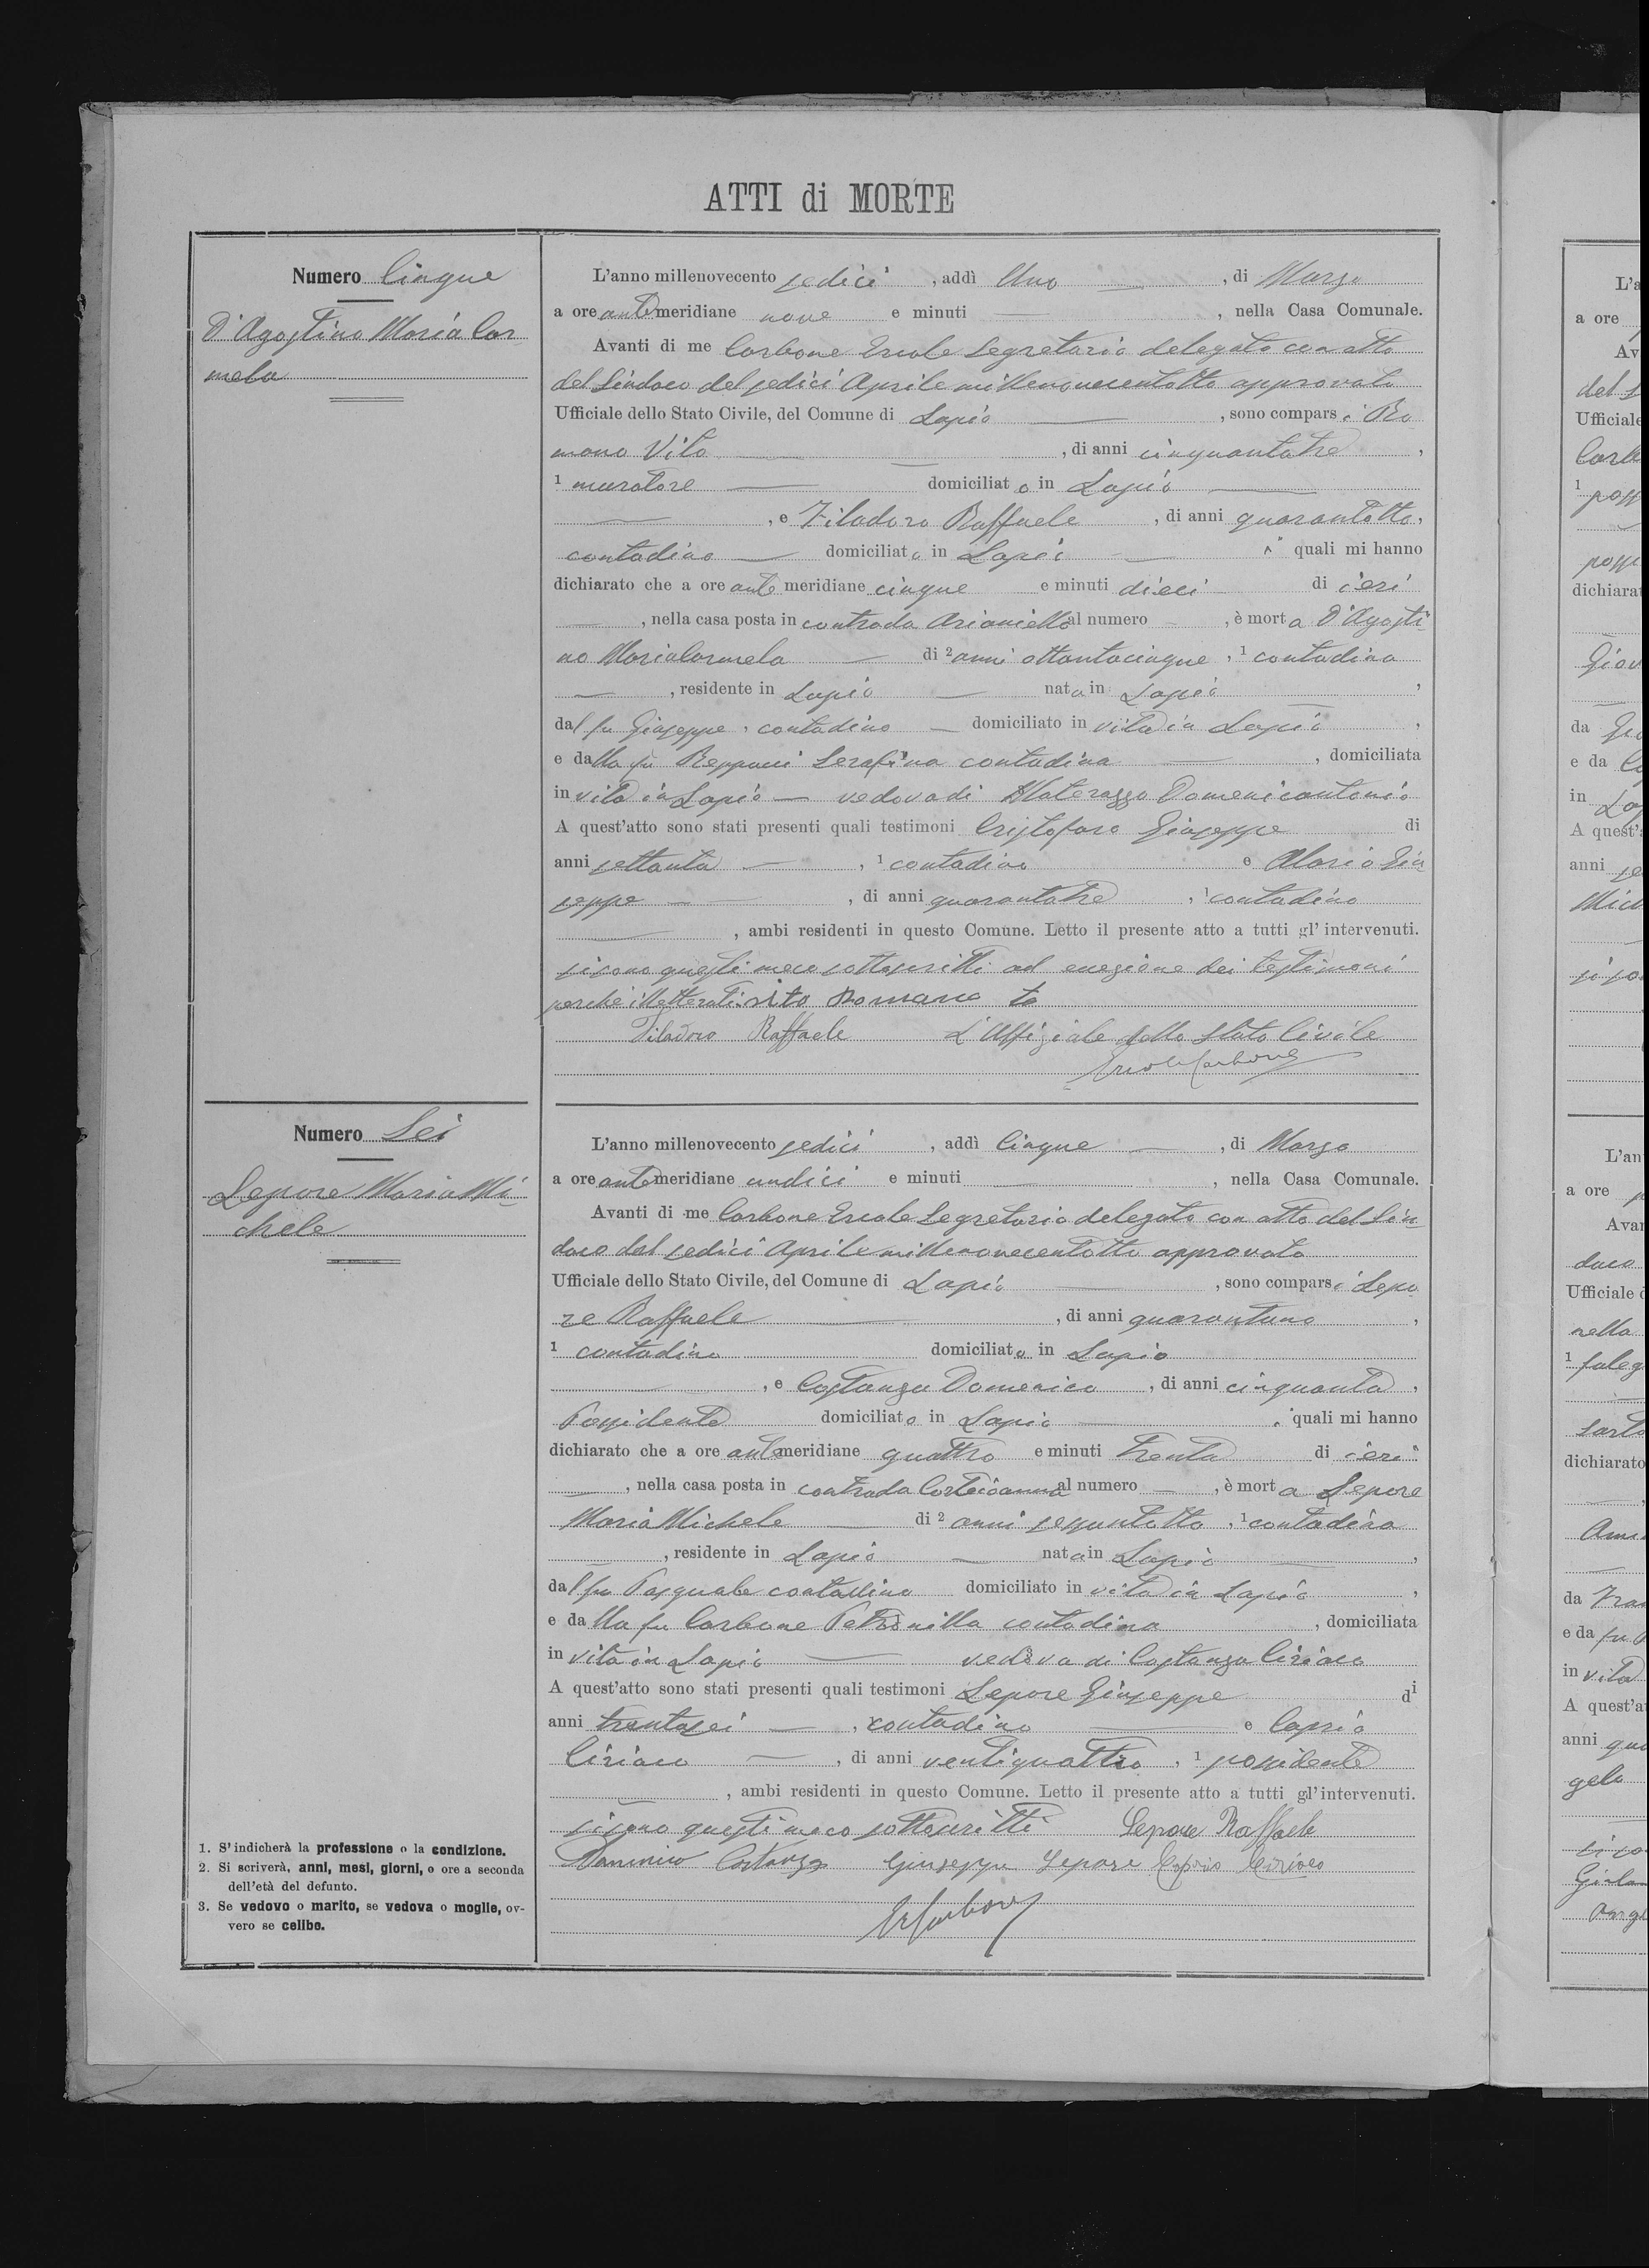 ATTI di MORTE
Numero Cinque
D'Agostino Maria Car-
mela
L'anno millenovecento sedici , addì Uno , di Marzo
a ore antemeridiane nove e minuti , nella Casa Comunale.
Avanti di me Carbone Ercole Segretario delegato con atto
del Sindaco del sedici Aprile millenovecentotto approvato
Ufficiale dello Stato Civile, del Comune di Lapio , sono comparsi Ro
mano Vito , di anni cinquantatre ,
1 muratore domiciliato in Lapio
, e Filadoro Raffaele , di anni quarantotto,
contadino domiciliato in Lapio i quali mi hanno
dichiarato che a ore antemeridiane cinque e minuti dieci di ieri
, nella casa posta in contrada Arianiello al numero , è morta D'Agosti-
no Maria Carmela di 2 anni ottantacinque , 1 contadina
, residente in Lapio nata in Lapio ,
dal fu Giuseppe , contadino domiciliato in vita in Lapio ,
e dalla fu Reppucci Serafina contadina , domiciliata
in vita in Lapio vedova di Materazzo Domenicantonio
A quest'atto sono stati presenti quali testimoni Cristofaro Giuseppe di
anni settanta , 1 contadino e Alario Giu
seppe , di anni quarantatre , 1 contadino
, ambi residenti in questo Comune. Letto il presente atto a tutti gl' intervenuti.
si sono questi meco sottoscritti ad eccezione dei testimoni
perchè illetterati. Vito Romano
Filadoro Raffaele L'Uffiziale dello Stato Civile
Ercole Carbone
Numero Sei
Lepore Maria Mi-
chele
L'anno millenovecento sedici , addì Cinque , di Marzo
a ore antemeridiane undici e minuti , nella Casa Comunale.
Avanti di me Carbone Ercole Segretario delegato con atto del Sin-
daco del sedici Aprile millenovecentotto approvato
Ufficiale dello Stato Civile, del Comune di Lapio , sono comparsi Lepo
re Raffaele , di anni quarantuno ,
1 contadino domiciliato in Lapio
, e Costanza Domenico , di anni cinquanta ,
Possidente domiciliato in Lapio i quali mi hanno
dichiarato che a ore antemeridiane quattro e minuti trenta di ieri
, nella casa posta in contrada Corteioanna al numero , è morta Lepore
Maria Michele di 2 anni sessantotto , 1 contadina
, residente in Lapio nata in Lapio ,
dal fu Pasquale contadino domiciliato in vita in Lapio ,
e dalla fu Carbone Petronilla contadina , domiciliata
in vita in Lapio vedova di Costanza Ciriaco
A quest'atto sono stati presenti quali testimoni Lepore Giuseppe di
anni trentasei , contadino e Caprio
Ciriaco , di anni ventiquattro , 1 possidente
, ambi residenti in questo Comune. Letto il presente atto a tutti gl'intervenuti.
si sono questi meco sottoscritti Lepore Raffaele
Domenico Costanza Giuseppe Lepore Caprio Ciriaco
1. S'indicherà la professione o la condizione.
2. Si scriverà, anni, mesi, giorni, o ore a seconda
dell'età del defunto.
3. Se vedovo o marito, se vedova o moglie, ov-
vero se celibe.
L'a
a ore
Av
del s
Ufficiale
Carb
1 poss
posse
dichiara
Giov
da
e da
in Lap
A quest'
anni se
Mich
si so
L'an
a ore
Avan
daco
Ufficiale
nella
1 faleg
sarto
dichiarato
da Fra
e da fu
in vita
A quest'a
anni qua
gelo
si so